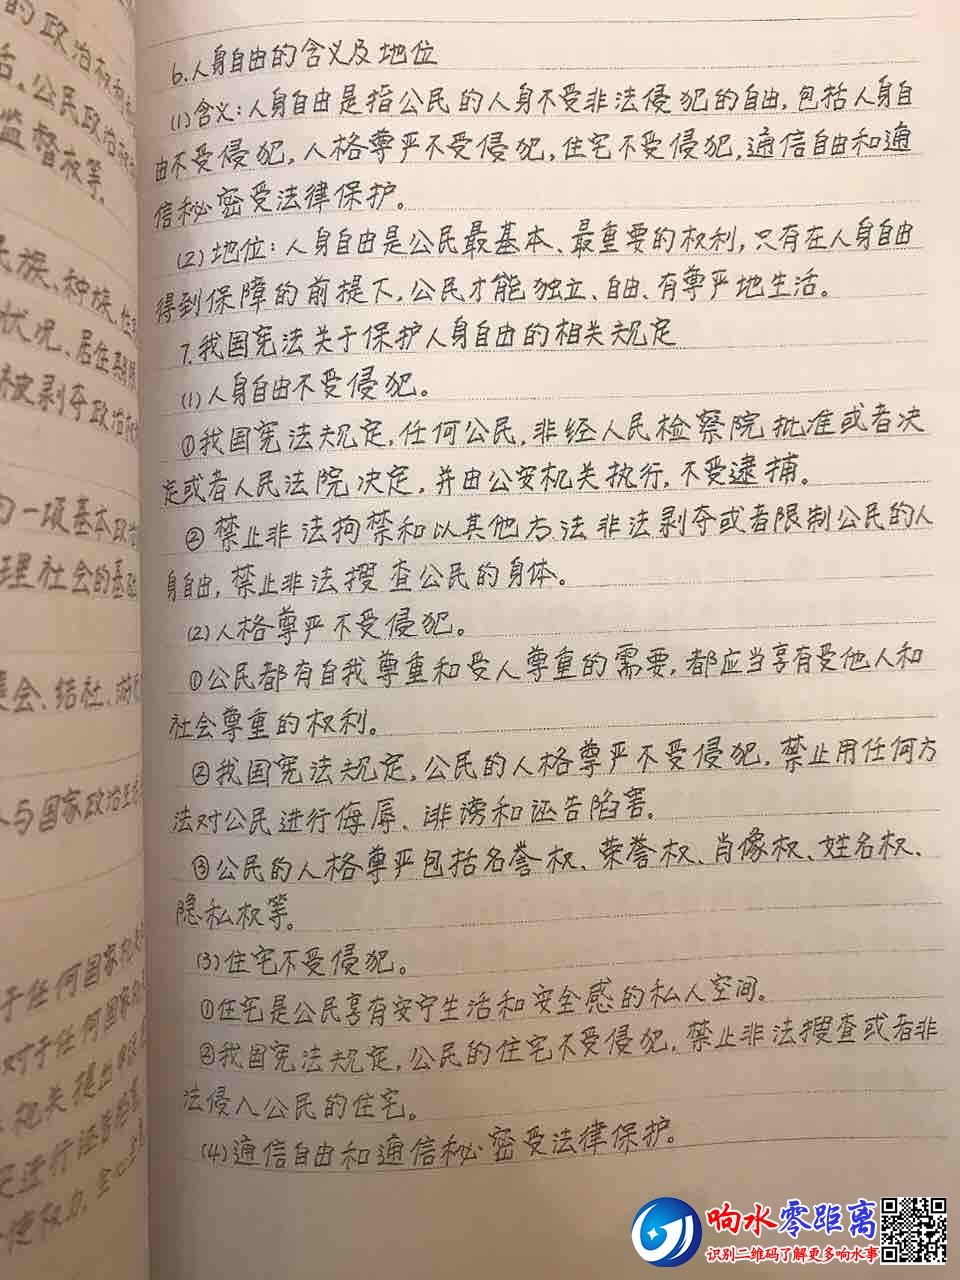 的政治权利
活。公民政治
监督权等。
民族、种族、性
状况、居住
被剥夺政治
的一项基本政治
理社会的基础
集会、结社、游
与国家政治生活
于任何国家机关
对于任何国家
机关提出
6.人身自由的含义及地位
(1)含义:人身自由是指公民的人身不受非法侵犯的自由,包括人身自
由不受侵犯,人格尊严不受侵犯,住宅不受侵犯,通信自由和通
信秘密受法律保护。
(2)地位:人身自由是公民最基本、最重要的权利,只有在人身自由
得到保障的前提下,公民才能独立、自由、有尊严地生活。
7.我国宪法关于保护人身自由的相关规定
(1)人身自由不受侵犯。
①我国宪法规定,任何公民,非经人民检察院批准或者决
定或者人民法院决定,并由公安机关执行,不受逮捕。
②禁止非法拘禁和以其他方法非法剥夺或者限制公民的人
身自由,禁止非法搜查公民的身体。
(2)人格尊严不受侵犯。
①公民都有自我尊重和受人尊重的需要,都应当享有受他人和
社会尊重的权利。
②我国宪法规定,公民的人格尊严不受侵犯,禁止用任何方
法对公民进行侮辱、诽谤和诬告陷害。
③公民的人格尊严包括名誉权、荣誉权、肖像权、姓名权、
隐私权等。
(3)住宅不受侵犯。
①住宅是公民享有安宁生活和安全感的私人空间。
②我国宪法规定,公民的住宅不受侵犯,禁止非法搜查或者非
法侵入公民的住宅。
(4)通信自由和通信秘密受法律保护。
响水零距离
识别二维码了解更多响水事